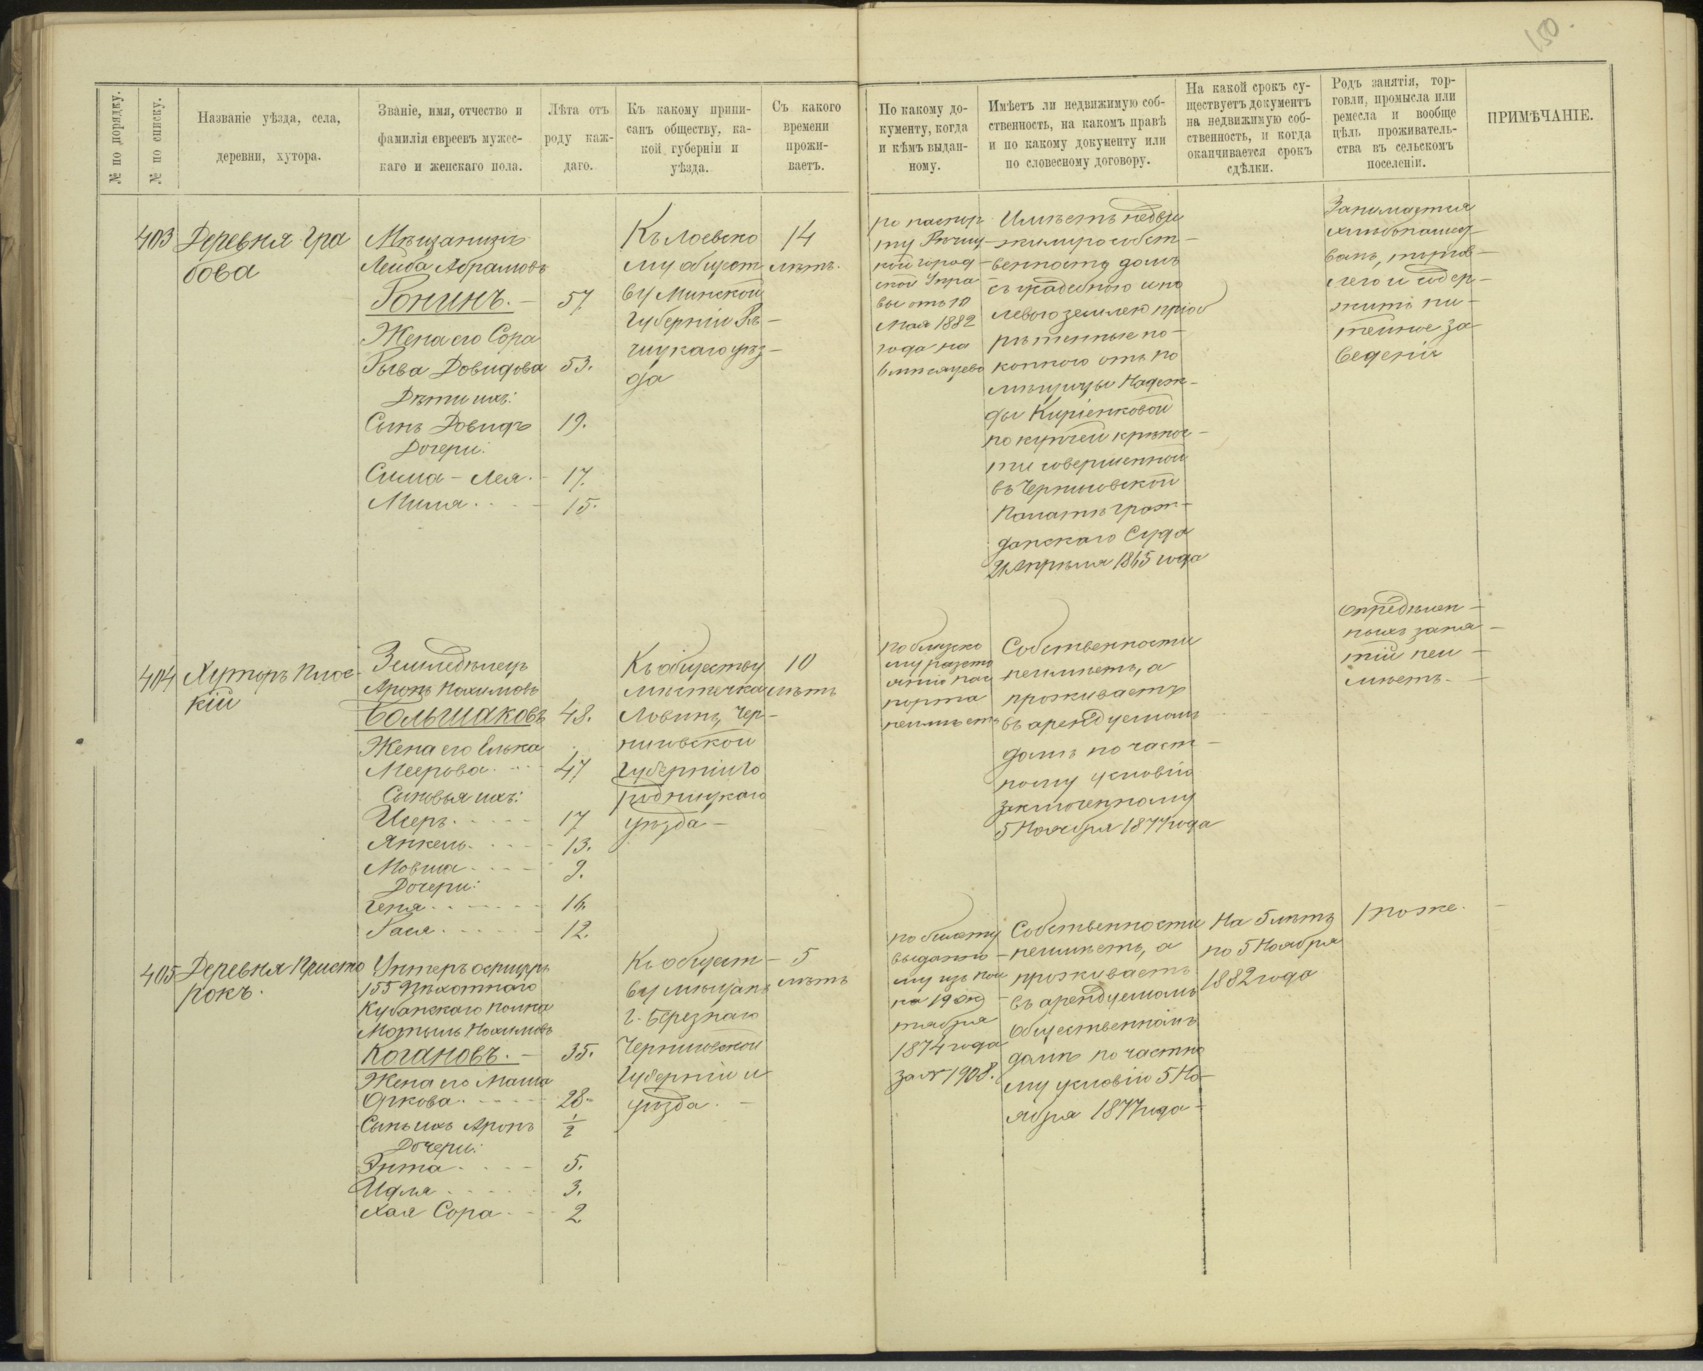 150.
№ по порядку.
№ по списку.
Названіе уѣзда, села,
деревни, хутора.
Званіе, имя, отчество и
фамилія евреевъ мужес-
каго и женскаго пола.
Лѣта отъ
роду каж-
даго.
Къ какому припи-
санъ обществу, ка-
кой губерніи и
уѣзда.
Съ какого
времени
прожи-
ваетъ.
По какому до-
кументу, когда
и кѣмъ выдан-
ному.
Имѣетъ ли недвижимую соб-
ственность, на какомъ правѣ
и по какому документу или
по словесному договору.
На какой срокъ су-
ществуетъ документъ
на недвижимую соб-
ственность, и когда
оканчивается срокъ
сдѣлки.
Родъ занятія, тор-
говли, промысла или
ремесла и вообще
цѣль проживатель-
ства въ сельскомъ
поселеніи.
ПРИМѢЧАНІЕ.
403
Деревня Гра
бова
Мѣщанинъ
Лейба Абрамовъ
Ронинъ. — 57
Жена его Сора
Рыва Довидова 53.
Дѣти ихъ:
Сынъ Довидъ 19.
Дочери:
Сима - Лея. - 17.
Миля. 15.
Къ Лоевско
му общест
ву Минской
Губерніи Рѣ-
чицкаго уѣз-
да
14
лѣтъ.
по паспор
ту Рѣчиц-
кой Город-
ской Упра
вы отъ 10
Мая 1882
года на
6 мѣсяцево
Имѣетъ недви
жимую собст-
венность домъ
съ усадебною и по
левою землею пріоб
рѣтенные по-
копного отъ по
мѣщицы Надеж-
ды Киріенковой
по купчей крѣпос-
ти совершенной
въ Черниговской
Палатѣ Граж-
данскаго Суда
21 Апрѣля 1865 года
Занимается
хлѣбопашест-
вомъ, торгов-
лею и содер-
житъ пи-
тейное за-
веденіе
404
Хуторъ Плос-
кій
Земледѣлецъ
Аронъ Нохимовъ
Большаковъ 48.
Жена его Елька
Меерова. 47
Сыновья ихъ:
Исеръ. 17
Янкель. 13.
Мовша 9.
Дочери:
Геня. 16
Хася. 12.
Къ обществу
мѣстечка
Ловинь, Чер-
ниговской
Губерніи Го
родницкаго
уѣзда -
10
лѣтъ
по близко
му разсто
янію пас
порта
неимѣетъ
Собственности
неимѣетъ, а
проживаетъ
въ арендуемомъ
домѣ по част-
ному условію
заключенному
5 Ноября 1877 года
опредѣлен-
ныхъ заня-
тій неи-
мѣетъ. -
405
Деревня Присто
рокъ.
Унтеръ офицеръ
155 Пѣхотнаго
Кубанскаго полка
Мортыль Нохимовъ
Когановъ. - 35.
Жена его Маша
Оркова. 28-
Сынъ ихъ Аронъ ½
Дочери:
Энта. 5.
Идля. 3.
Хая Сора. 2
Къ общест-
ву мѣщанъ
г. Березнаго
Черниговской
Губерніи и
уѣзда. -
5
лѣтъ
по билету
выданно-
му изъ пол
ка 19 Ок
тября
1874 года
за № 1908.
Собственности
неимѣетъ, а
проживаетъ
въ арендуемомъ
общественномъ
домѣ по частно
му условію 5 Но-
ября 1877 года -
На 5 лѣтъ
по 5 Ноября
1882 года
тоже.